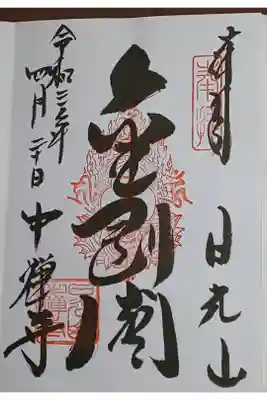 奉拝
日光山
金剛堂
令和三年
四月二十日
中禅寺